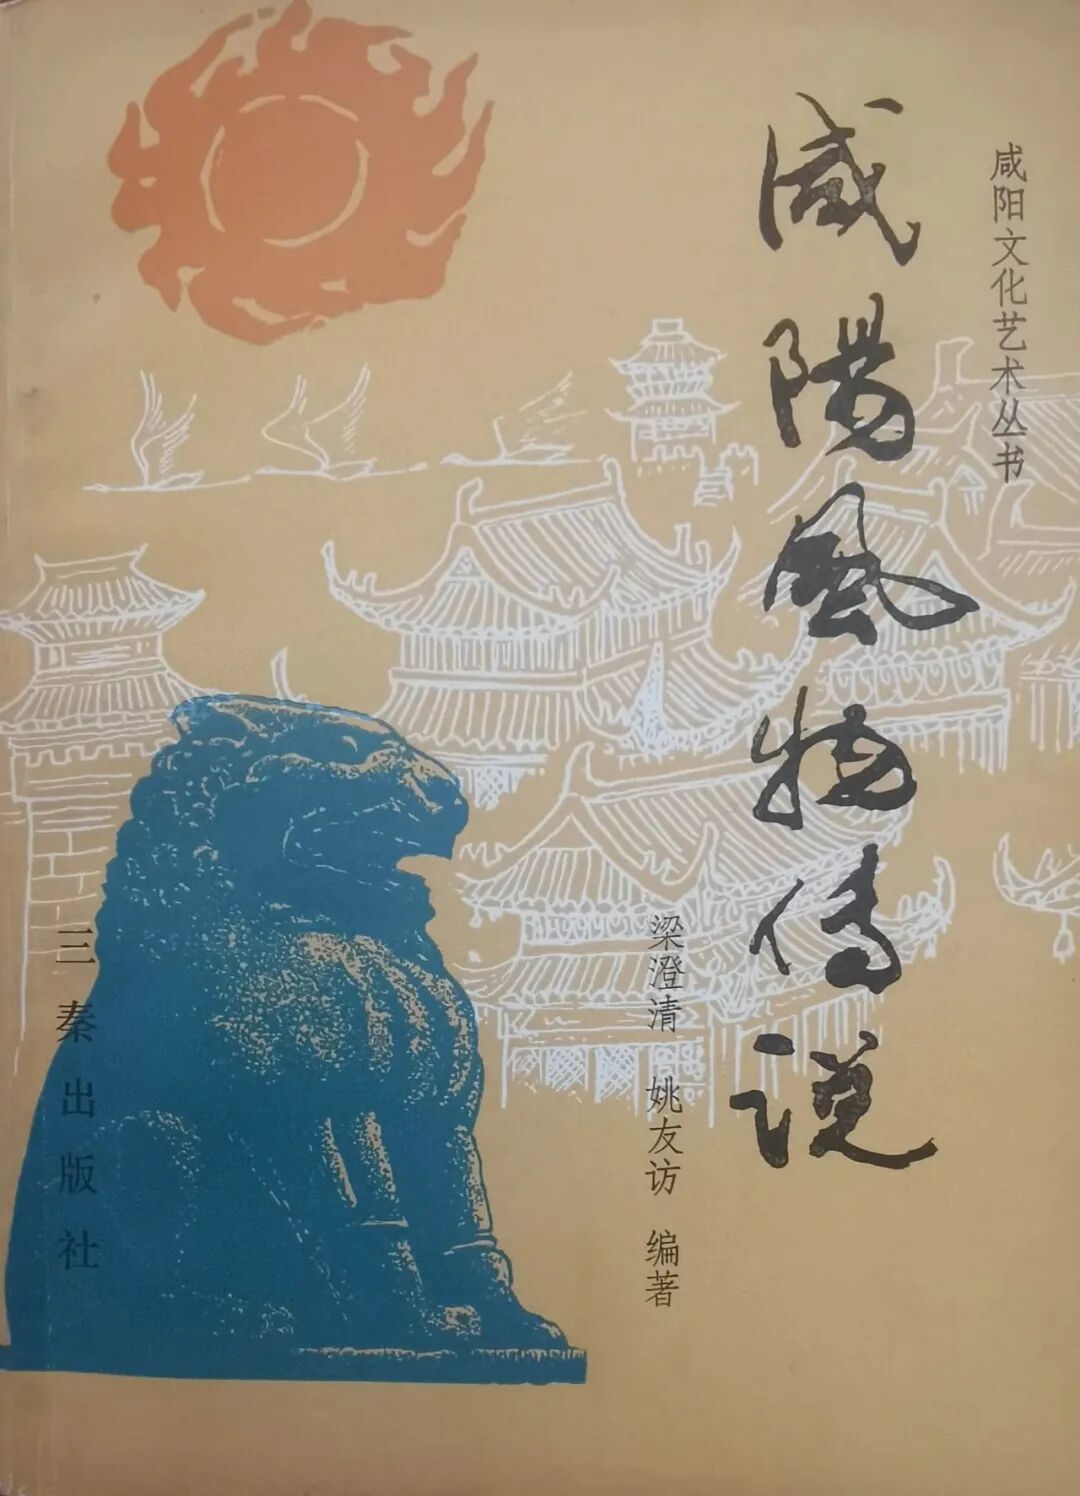 咸阳文化艺术丛书
咸陽風物传说
梁澄清 姚友访 编著
三秦出版社